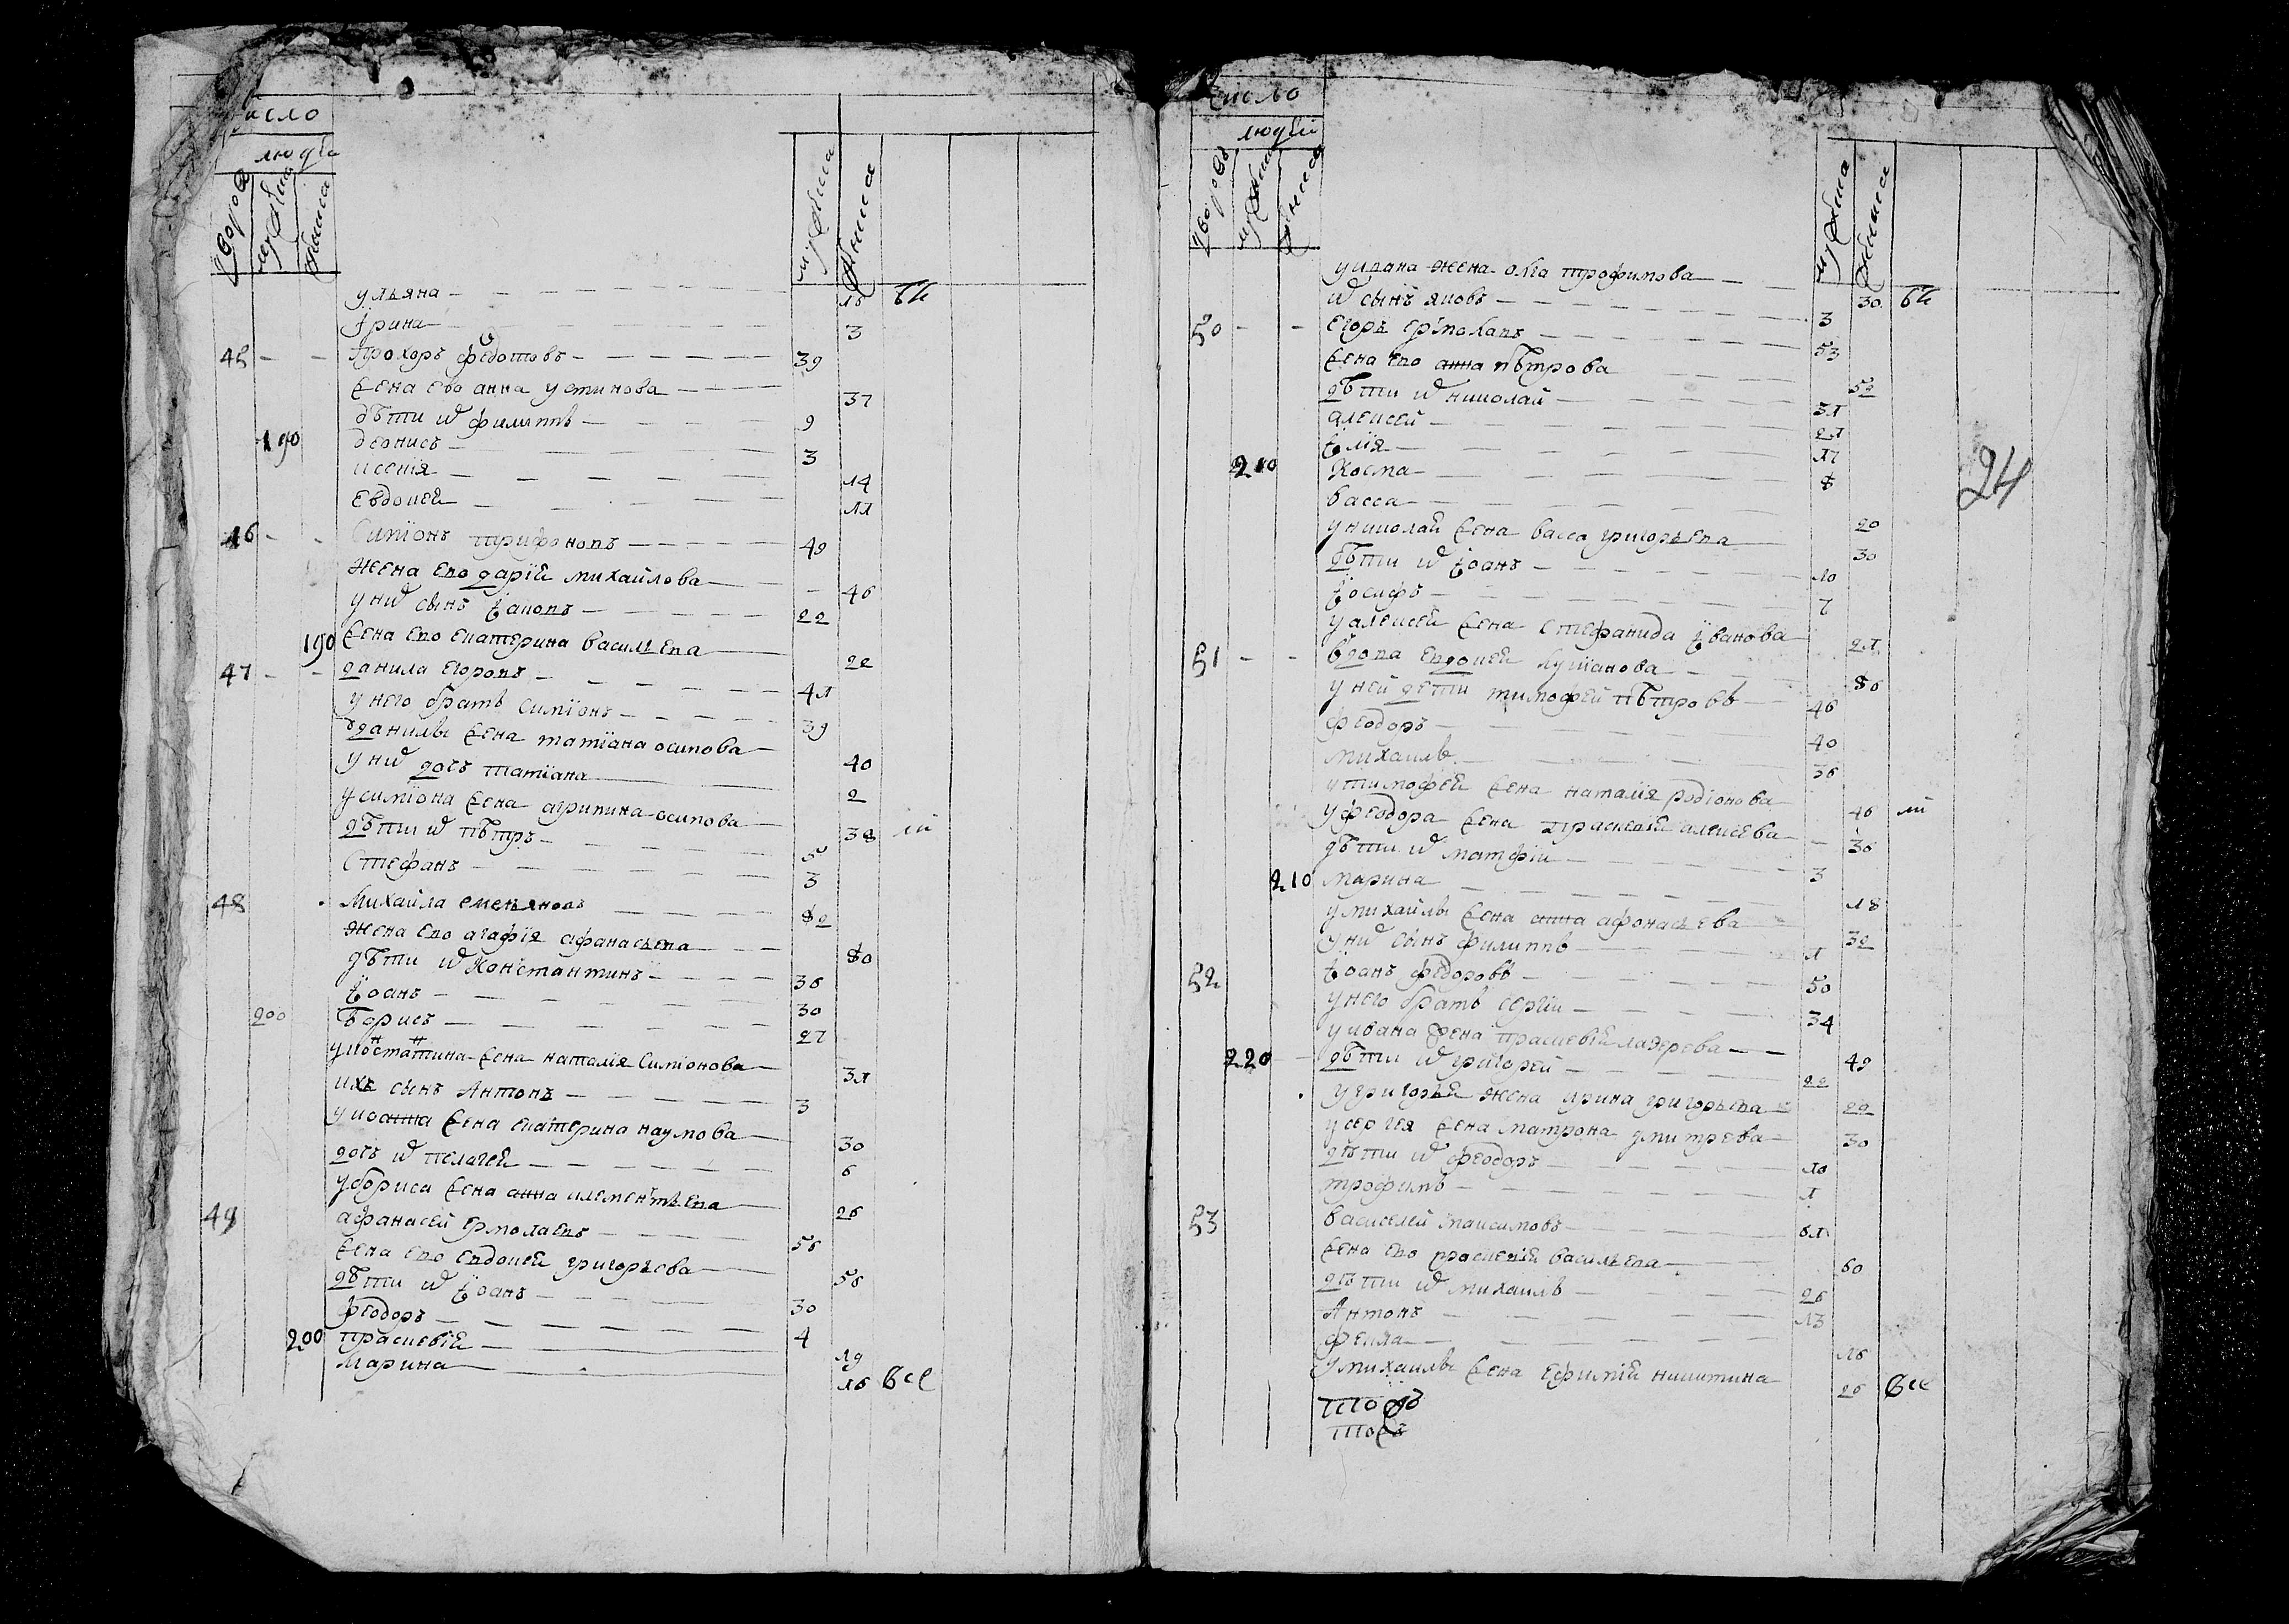 число
люди
дворовъ
мужеска
женска
мужеска
женска
ульяна 16 бы
ірина 3
45 прохоръ федотовъ 39
жена ево анна устинова 37
дѣти их филиппъ 9
190 деонисъ 3
ксенія 14
евдокей 11
46 Симіонъ трифоновъ 49
жена ево дарїй михайлова 46
у них сынъ іаковъ 22
190 жена ево екатерина васильева 22
47 данила егоровъ 41
у него братъ симіонъ 39
у данилы жена татїана осипова 40
у них дочь татїана 2
у симїона жена агрипина осипова 38
дѣти их пѣтръ 5
Стефанъ 3
48 Михайла емельяновъ
жена ево агафїя афанасьева
дѣти их Константинъ 36
іоанъ 30
200 борисъ 27
у костантина жена наталія симіонова 31
ихъ сынъ Антонъ 3
жена екатерина наумова 30
дочь их пелагей 6
у бориса жена анна клементьева 26
49 афанасей ермолаевъ 56
жена ево евдокей григорьева 56
дѣти их іоанъ 30
феодоръ 4
200 праскевїй 19
марина 16 все
число
люди
дворовъ
мужеска
женска
мужеска
женска
24
у ивана жена олга трофимова 30 бы
их сынъ яковъ 3
50 егоръ ермолаевъ 53
жена ево анна пѣтрова 52
дѣти их николай 31
алексей 21
ілія 17
210 Косма 8
васса 20
у николай жена васса григорьева 30
дѣти их іоанъ 10
іосифъ 7
у алексей жена стефанида іванова 21
51 вдова евдокей лукїанова
у ней дети тимофей пѣтровъ 46
феодоръ 40
михаилъ 36
у тимофей жена наталія родіонова 46
у феодора жена праскевїй алексева 36
дѣти их матфїи 3
210 марина 18
у михайлы жена анна афонасьева 32
у них сынъ филиппъ 1
52 іоанъ федоровъ 50
у него братъ сергїи 34
у ивана жена праскевїй лазерева 49
220 дѣти их григорей 22
у григорьй жена ирина григорьева 22
у сергея жена матрона дмитрева 30
дѣти их феодоръ 10
трофимъ 1
53 василей максимовъ 61
жена ево праскевїй васильева 60
дѣти их михаилъ 26
Антонъ 13
фекла 16
у михаилы жена ефимїй никитина 26 все